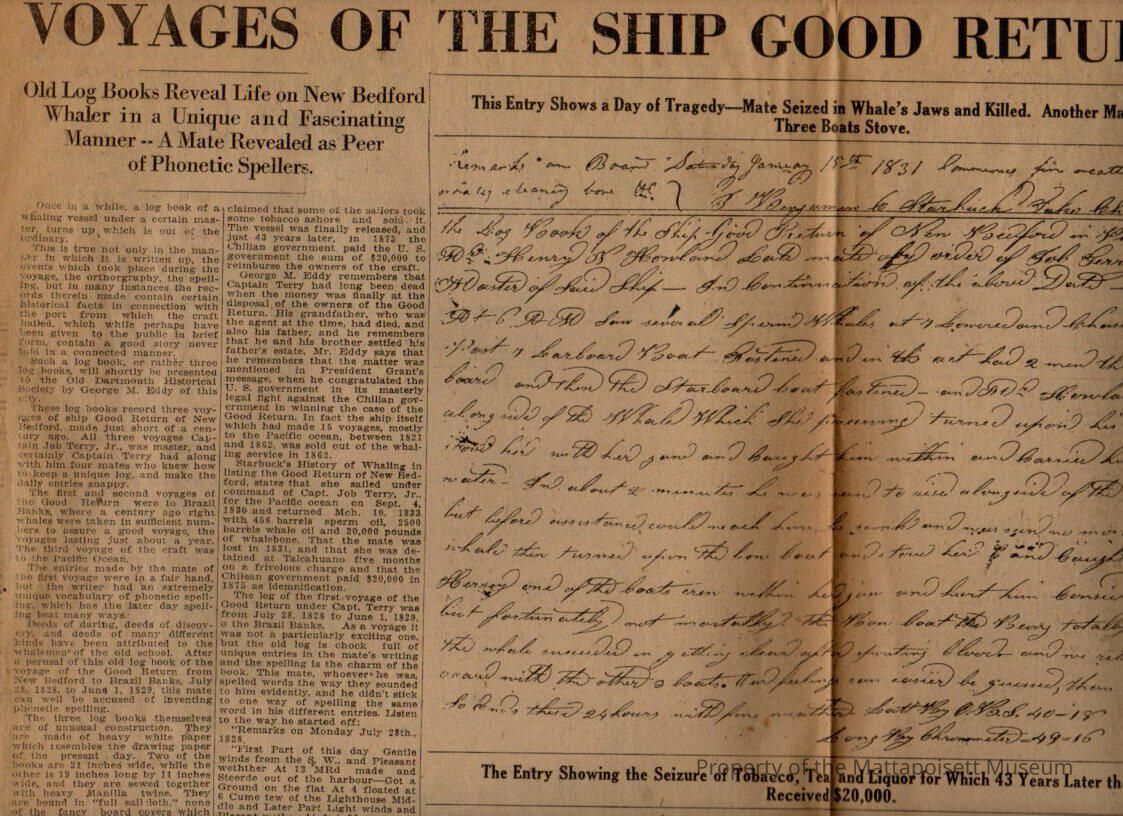 VOYAGES OF THE SHIP GOOD RETU
Old Log Books Reveal Life on New Bedford
Whaler in a Unique and Fascinating
Manner -- A Mate Revealed as Peer
of Phonetic Spellers.
Once in a while, a log book of a
whaling vessel under a certain mas-
ter, turns up which is out of the
ordinary.
This is true not only in the man-
ner in which it is written up, the
events which took place during the
voyage, the orthorgraphy, the spell-
ing, but in many instances the rec-
ords therein made contain certain
historical facts in connection with
the port from which the craft
hailed, which while perhaps have
been given to the public in brief
form, contain a good story never
told in a connected manner.
Such a log book, or rather three
log books, will shortly be presented
to the Old Dartmouth Historical
Society by George M. Eddy of this
city.
These log books record three voy-
ages of ship Good Return of New
Bedford, made just short of a cen-
tury ago. All three voyages Cap-
tain Job Terry, Jr., was master, and
certainly Captain Terry had along
with him four mates who knew how
to keep a unique log, and make the
daily entries snappy.
The first and second voyages of
the Good Return were to Brazil
Banks, where a century ago right
whales were taken in sufficient num-
bers to assure a good voyage, the
voyages lasting just about a year.
The third voyage of the craft was
to the Pacific Ocean.
The entries made by the mate of
the first voyage were in a fair hand,
but the writer had an extremely
unique vocabulary of phonetic spell-
ing, which has the later day spell-
ing beat many ways.
Deeds of daring, deeds of discov-
ery, and deeds of many different
kinds have been attributed to the
whalemen of the old school. After
a perusal of this old log book of the
voyage of the Good Return from
New Bedford to Brazil Banks, July
28, 1828, to June 1, 1829, this mate
can well be accused of inventing
phonetic spelling.
The three log books themselves
are of unusual construction. They
are made of heavy white paper
which resembles the drawing paper
of the present day. Two of the
books are 21 inches wide, while the
other is 19 inches long by 11 inches
wide, and they are sewed together
with heavy Manilla twine. They
are bound in "full sail cloth," none
of the fancy board covers which
claimed that some of the sailors took
some tobacco ashore and sold it.
The vessel was finally released, and
just 43 years later, in 1875 the
Chilian government paid the U. S.
government the sum of $20,000 to
reimburse the owners of the craft.
George M. Eddy remembers that
Captain Terry had long been dead
when the money was finally at the
disposal of the owners of the Good
Return. His grandfather, who was
the agent at the time, had died, and
also his father, and he remembers
that he and his brother settled his
father's estate. Mr. Eddy says that
he remembers that the matter was
mentioned in President Grant's
message, when he congratulated the
U. S. government in its masterly
legal fight against the Chilian gov-
ernment in winning the case of the
Good Return. In fact the ship itself
which had made 15 voyages, mostly
to the Pacific ocean, between 1821
and 1862, was sold out of the whal-
ing service in 1862.
Starbuck's History of Whaling in
listing the Good Return of New Bed-
ford, states that she sailed under
command of Capt. Job Terry, Jr.,
for the Pacific ocean on Sept. 4,
1830 and returned Mch. 10, 1833
with 456 barrels sperm oil, 2500
barrels whale oil and 20,000 pounds
of whalebone. That the mate was
lost in 1831, and that she was de-
tained at Talcahuano five months
on a frivolous charge and that the
Chilean government paid $20,000 in
1875 as idemnification.
The log of the first voyage of the
Good Return under Capt. Terry was
from July 28, 1828 to June 1, 1829,
o the Brazil Banks. As a voyage it
was not a particularly exciting one,
but the log is chock full of
unique entries in the mate's writing
and the spelling is the charm of the
book. This mate, whoever he was,
spelled words the way they sounded
to him evidently, and he didn't stick
to one way of spelling the same
word in his different entries. Listen
to the way he started off:
"Remarks on Monday July 28th.,
1828.
"First Part of this day Gentle
winds from the S. W., and Pleasant
wethther At 12 MRd made and
Steerde out of the harbour—Got a
Ground on the flat At 4 floated at
6 Cume tew of the Lighthouse Mid-
dle and Later Part Light winds and
This Entry Shows a Day of Tragedy—Mate Seized in Whale's Jaws and Killed. Another Ma
Three Boats Stove.
Remarks on Board Saturday January 15th 1831 Commences fine weath
cleaning bone &c } I Benjamin C Starbuck Take Ch
the Log Book of the Ship Good Return of New Bedford in
Henry Howland Late mate by order of Job Terr
Master of Said Ship — In Continuation of the above Date —
P M Saw several Sperm Whales at Lowered and Chas
past Larboard Boat fastened and in the act had 2 men th
board and then the Starboard boat fastened — and Mr Howla
along side of the Whale Which She perceiving turned upon his
boat her with her jaw and Caught him within and Carried h
water — In about 2 minutes he was to rise alongside of the
but before assistance could reach him he sunk and was seen no mor
whale then turned upon the bow boat and stove her and Caugh
one of the boats crew within her jaw and hurt him Consi
but fortunately not mortally the Bow boat Being totally
the whale succeeded in getting clear after spouting blood and we ret
aboard with the other 2 boats. Our feelings can easier be guessed, than
So Ends these 24 hours with fine weather
Long by Chronometer
The Entry Showing the Seizure of Tobacco, Tea and Liquor for Which 43 Years Later th
Received $20,000.
Property of the Mattapoisett Museum